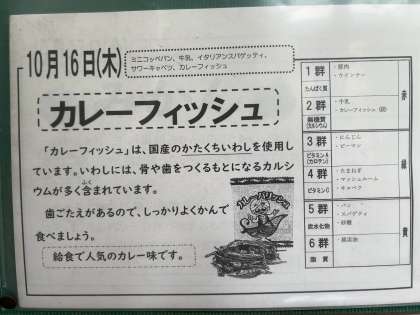 10月16日(木)
ミニコッペパン、牛乳、イタリアンスパゲッティ、
サワーキャベツ、カレーフィッシュ
カレーフィッシュ
「カレーフィッシュ」は、国産のかたくちいわしを使用し
ています。いわしには、骨や歯をつくるもとになるカルシ
ウムが多く含まれています。
ふく
歯ごたえがあるので、しっかりよくかんで
食べましょう。
給食で人気のカレー味です。
カレーフィッシュ
1群
たんぱく質
・豚肉
・ウインナー
2群
無機質
(カルシウム)
・牛乳
・カレーフィッシュ
赤
3群
ビタミンA
(カロテン)
・にんじん
・ピーマン
4群
ビタミンC
・たまねぎ
・マッシュルーム
・キャベツ
緑
5群
炭水化物
・パン
・スパゲティ
・砂糖
6群
脂質
黄